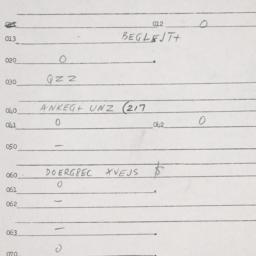 012 O
013 BEGLEJT+
020 O
030 GZZ
040 ANKEG+ UNZ (217
041 O 042 O
050 –
060 DOERGPEC XVEJS $
061 O
062 –
063 –
070 O